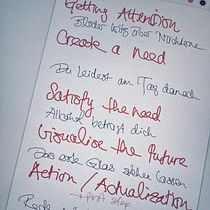 Getting Attention
Blöder Witz über Nüchterne
Create a need
Du leidest am Tag danach
Satisfy the need
Alkohol betrügt dich
Visualise the future
Das erste Glas stehen lassen
Action / Actualization
→ first step